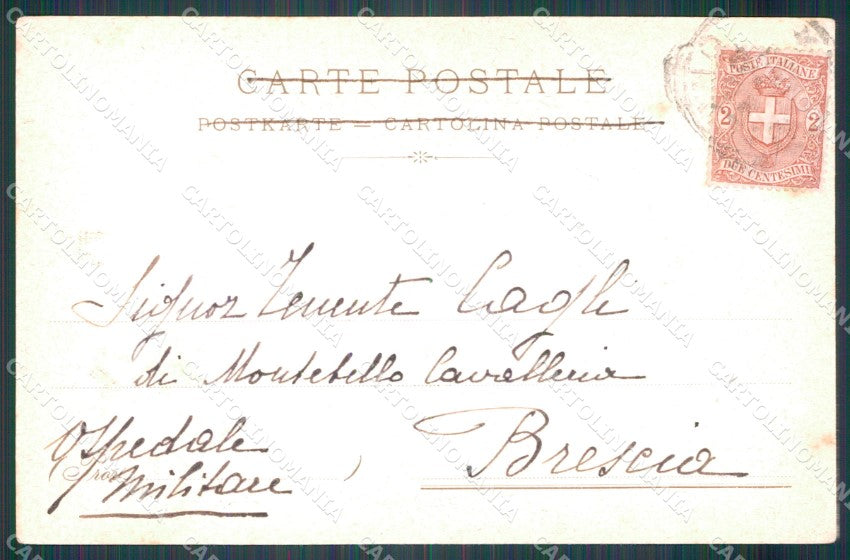 CARTE POSTALE
POSTKARTE = CARTOLINA POSTALE
POSTE ITALIANE
2 2
DUE CENTESIMI
Signor Tenente Cagli
di Montebello Cavalleria
Brescia
Ospedale
Militare
CARTOLINOMANIA